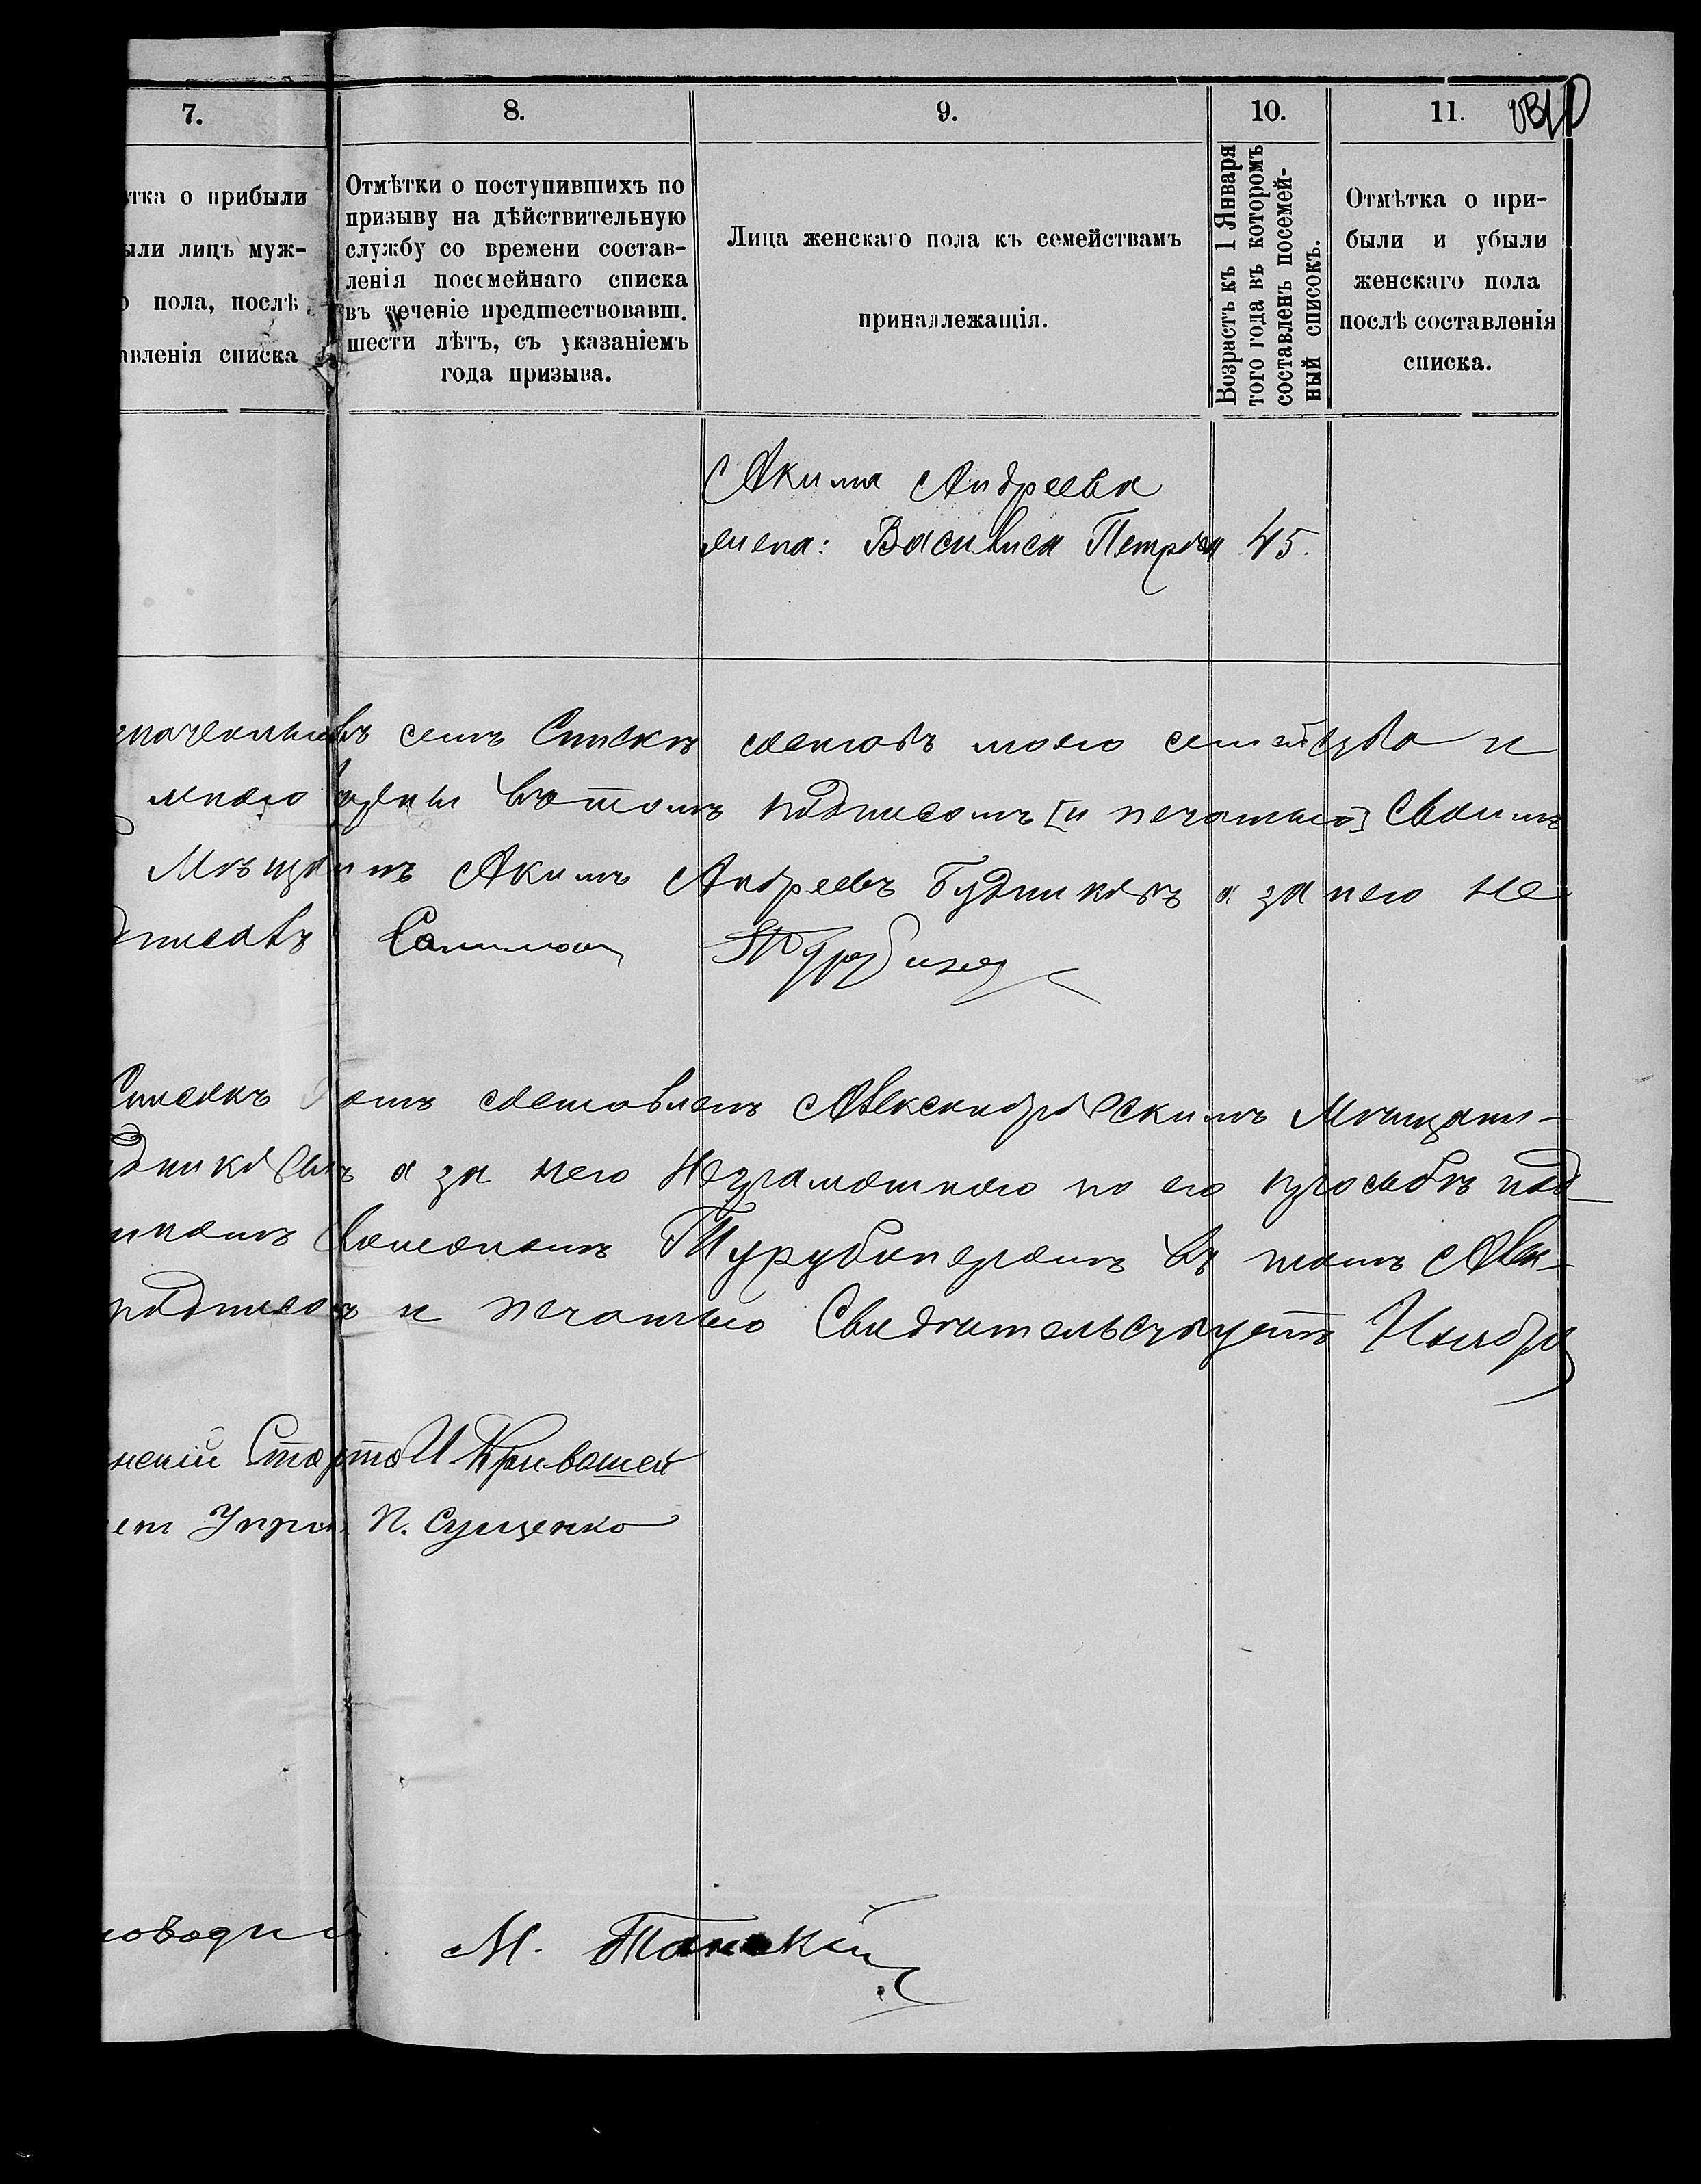 7.
8.
9.
10.
11.
тка о прибыли
ыли лицъ муж-
о пола, послѣ
авленія списка
Отмѣтки о поступившихъ по
призыву на дѣйствительную
службу со времени состав-
ленія посемейнаго списка
въ теченіе предшествовавш.
шести лѣтъ, съ указаніемъ
года призыва.
Лица женскаго пола къ семействамъ
принадлежащія.
Возрастъ къ 1 Января
того года въ которомъ
составленъ посемей-
ный списокъ.
Отмѣтка о при-
были и убыли
женскаго пола
послѣ составленія
списка.
Акима Андреева
жена: Василиса Петрова 45.
въ семъ Спискѣ составъ моего семейства и
мною въ томъ подписомъ [и печатью] своимъ
Мѣщанинъ Акимъ Андреевъ Будниковъ а за него не
Списокъ составленъ Александровскимъ Мѣщани-
дниковымъ а за него неграмотного по его просьбѣ под
въ томъ Алек-
подписомъ и печатью Свидѣтельствуетъ Ноября
нскій Староста И Кривошей
Управ. П. Сущенко
оводи
М.